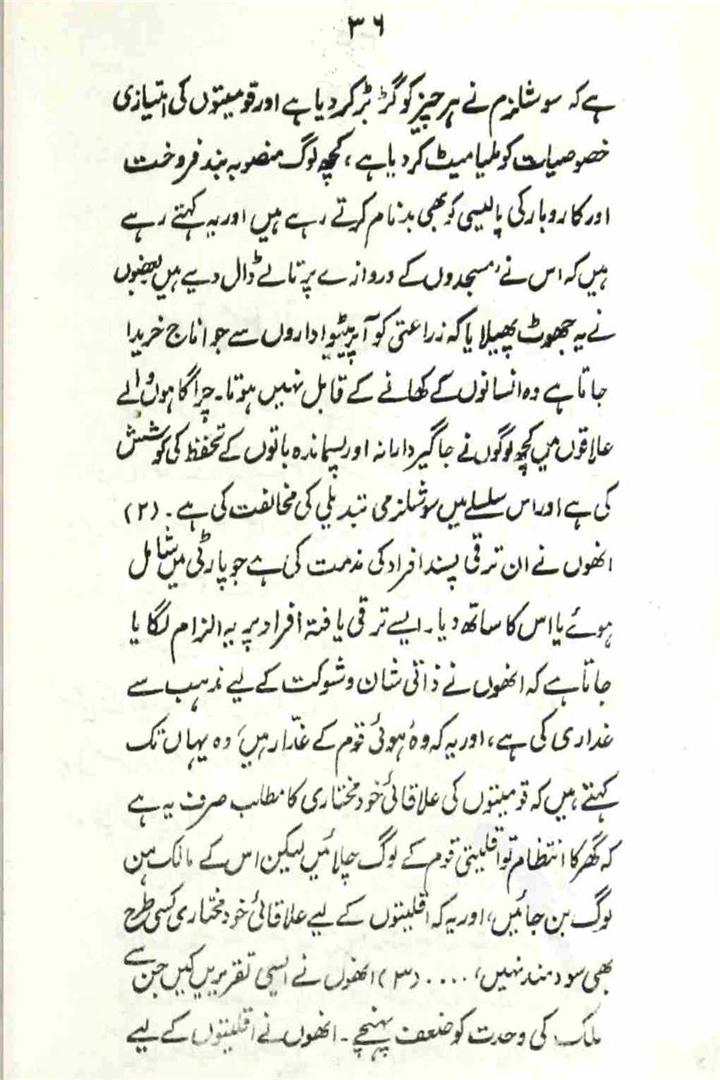 ۳۶
ہے کہ سوشلزم نے ہر چیز کو گڑ بڑ کر دیا ہے اور قومیتوں کی امتیازی
خصوصیات کو ملیامیٹ کر دیا ہے، کچھ لوگ منصوبہ بند فروخت
اور کاروبار کی پالیسی کو بھی بدنام کرتے رہے ہیں اور یہ کہتے رہے
ہیں کہ اس نے 'مسجدوں کے دروازے پر تالے ڈال دیے ہیں' بعضوں
نے یہ جھوٹ پھیلایا کہ زراعتی کوآپریٹیو اداروں سے جو اناج خریدا
جاتا ہے وہ انسانوں کے کھانے کے قابل نہیں ہوتا۔ چراگاہوں والے
علاقوں میں کچھ لوگوں نے جاگیردارانہ اور پسماندہ باتوں کے تحفظ کی کوشش
کی ہے اور اس سلسلے میں سوشلزمی تبدیلی کی مخالفت کی ہے۔ (۲)
انھوں نے ان ترقی پسند افراد کی مذمت کی ہے جو پارٹی میں شامل
ہوئے یا اس کا ساتھ دیا۔ ایسے ترقی یافتہ افراد پر یہ الزام لگایا
جاتا ہے کہ انھوں نے ذاتی شان و شوکت کے لیے مذہب سے
غداری کی ہے، اور یہ کہ وہ 'ہوئی قوم کے غدّار ہیں' وہ یہاں تک
کہتے ہیں کہ قومیتوں کی علاقائی خود مختاری کا مطلب صرف یہ ہے
کہ گھر کا انتظام تو اقلیتی قوم کے لوگ چلائیں لیکن اس کے مالک ہن
لوگ بن جائیں، اور یہ کہ 'اقلیتوں کے لیے علاقائی خود مختاری کسی طرح
بھی سود مند نہیں'، .... (۳) انھوں نے ایسی تقریریں کیں جن سے
ملک کی وحدت کو ضعف پہنچے۔ انھوں نے اقلیتوں کے لیے